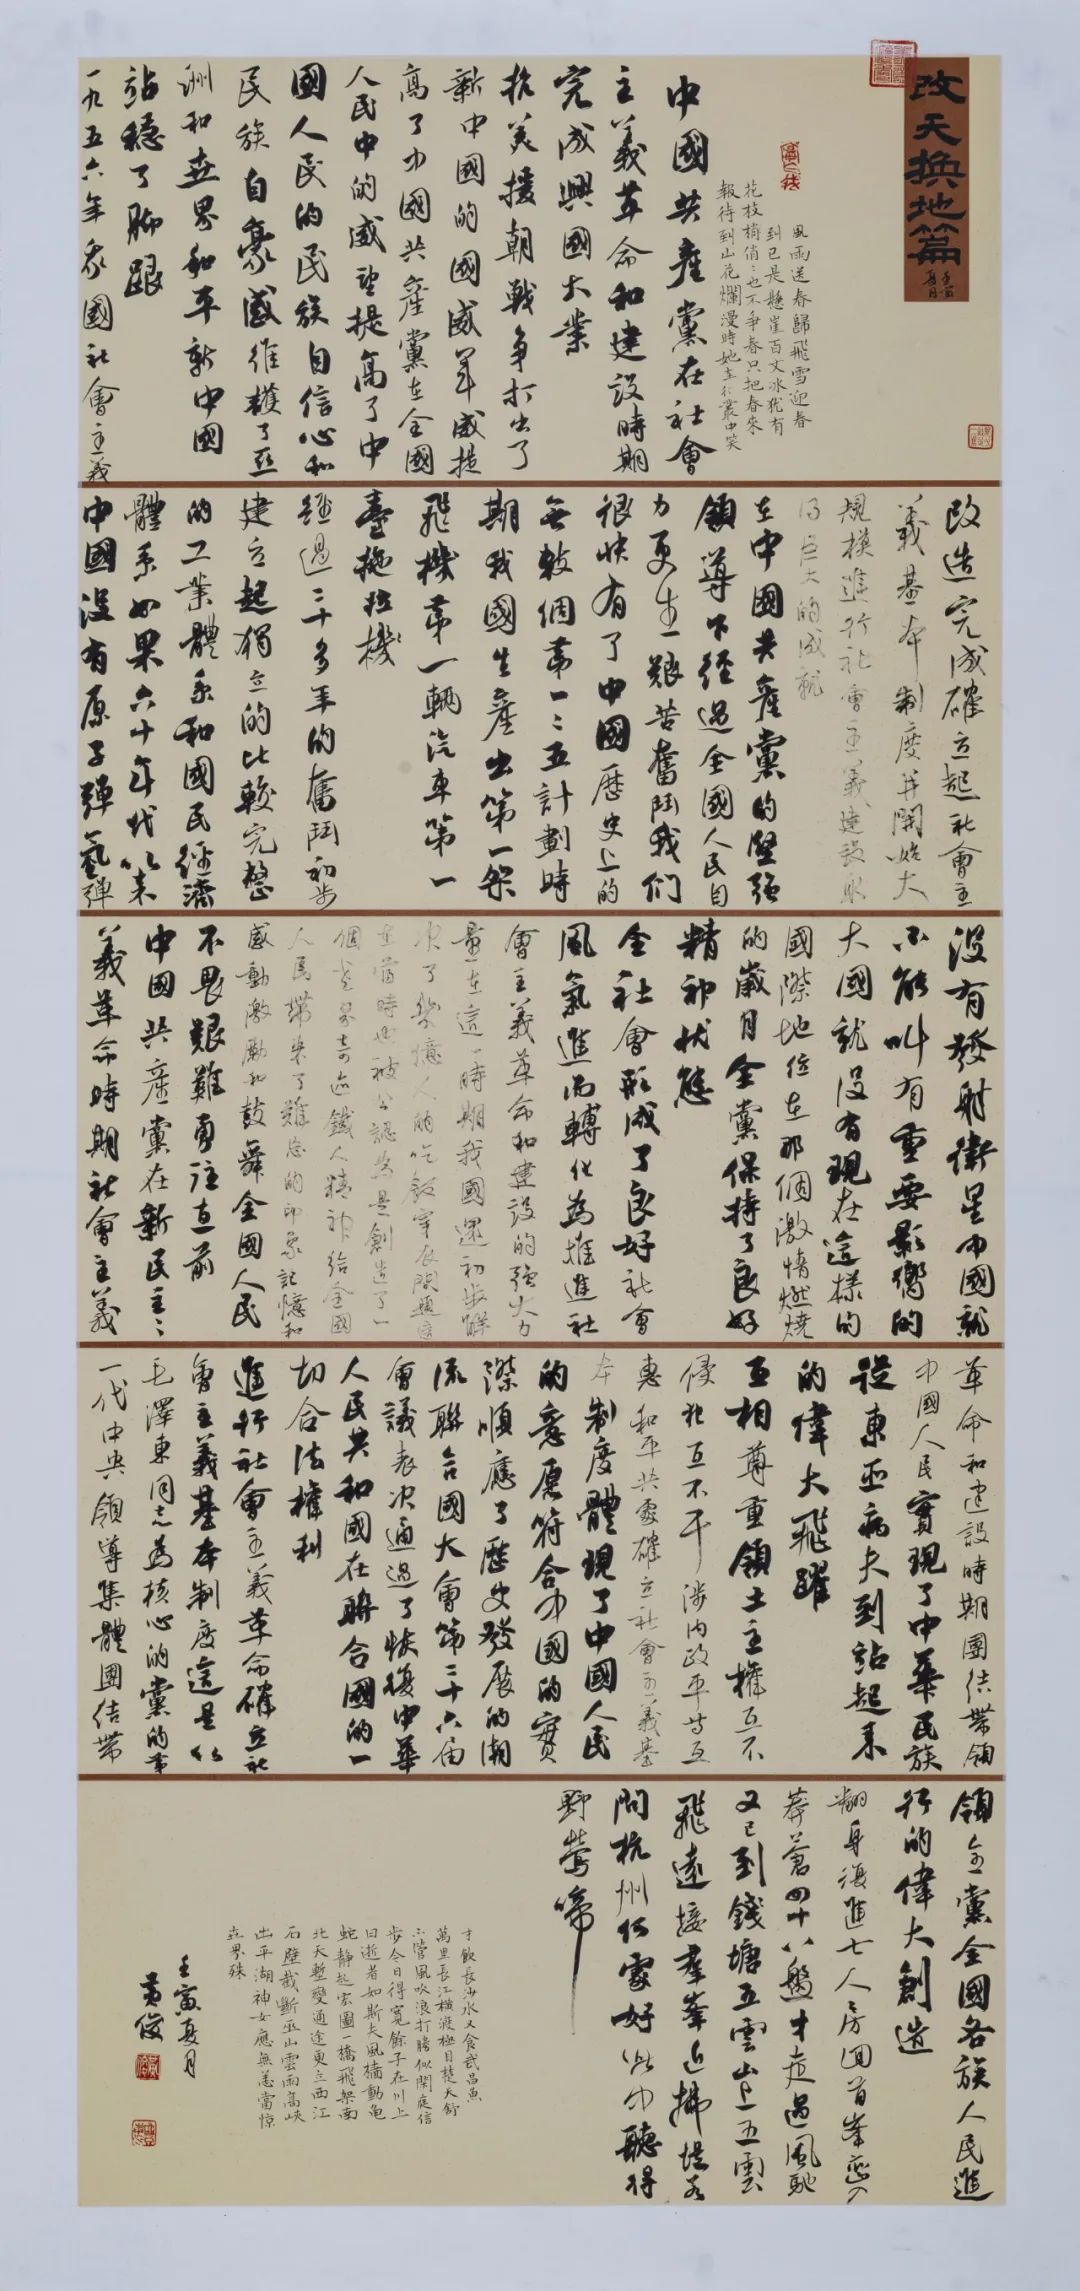 改天换地篇
壬寅
夏月
風雨送春歸飛雪迎春
到已是懸崖百丈冰犹有
花枝梢俏〻也不争春只把春來
報待到山花爛漫時她在丛叢中笑
中國共產黨在社會
主義革命和建設時期
完成興國大業
抗美援朝戰争打出了
新中國的國威軍威提
高了中國共產黨在全國
人民中的威望提高了中
國人民的民族自信心和
民族自豪感维護了亞
洲和世界和平新中國
站穩了脚跟
一九五六年我國社會主義
改造完成確立起社會主
義基本制度并開始大
規模進行社會主義建設取
得巨大的成就
在中國共産黨的堅强
領導下經過全國人民自
力更生艱苦奮鬥我們
很快有了中國歷史上的
無数個第一一五計劃時
期我國生產出第一架
飛機第一輛汽車第一
臺拖拉機
經過二十多年的奮鬥初步
建立起獨立的比較完整
的工業體系和國民經濟
體系如果六十年代以来
中國没有原子彈氢弹
没有發射衛星中國就
不能叫有重要影響的
大國就没有現在這樣的
國際地位在那個激情燃燒
的歲月全黨保持了良好
精神状態
全社會形成了良好社會
風氣進而轉化為推進社
會主義革命和建設的强大力
量在這一時期我國還初步解
决了幾億人的吃飯穿衣問題這
在當時也被公認為是創造了一
個世界奇迹鐵人精神給全國
人民带来了難忘的印象記憶和
感動激勵和鼓舞全國人民
不畏艱難勇往直前
中國共産黨在新民主主
義革命時期社會主義
革命和建設時期團结带領
中國人民實現了中華民族
從東亞病夫到站起来
的偉大飛躍
互相尊重領土主權互不
侵犯互不干涉内政平等互
惠和平共處確立社會主義基
本制度體現了中國人民
的意愿符合中國的實
際順應了歷史發展的潮
流聯合國大會第二十六届
會議表决通過了恢復中華
人民共和國在聯合國的一
切合法權利
進行社會主義革命確立社
會主義基本制度這是以
毛澤東同志為核心的黨的第
一代中央領導集體團结带
領全黨全國各族人民進
行的偉大創造
翻身復進七人房回首峯巒入
莽蒼四十八盤才走過風馳
又已到錢塘五雲山上五雲
飛遠接羣峯近拂堤若
問杭州何處好此中聽得
野莺啼
才飲長沙水又食武昌魚
萬里長江横渡極目楚天舒
不管風吹浪打勝似閑庭信
步今日得寬餘子在川上
曰逝者如斯夫風樯動龟
蛇静起宏圖一橋飛架南
北天塹變通途更立西江
石壁截斷巫山雲雨高峡
出平湖神女應無恙當惊
世界殊
壬寅夏月
黄俊